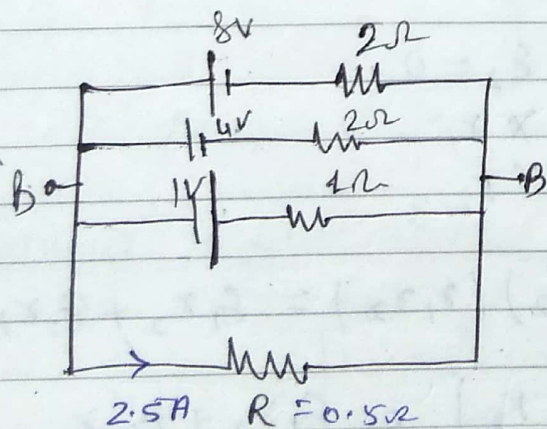 8V 2Ω
4V 2Ω
B B
1V 1Ω
2.5A R = 0.5Ω